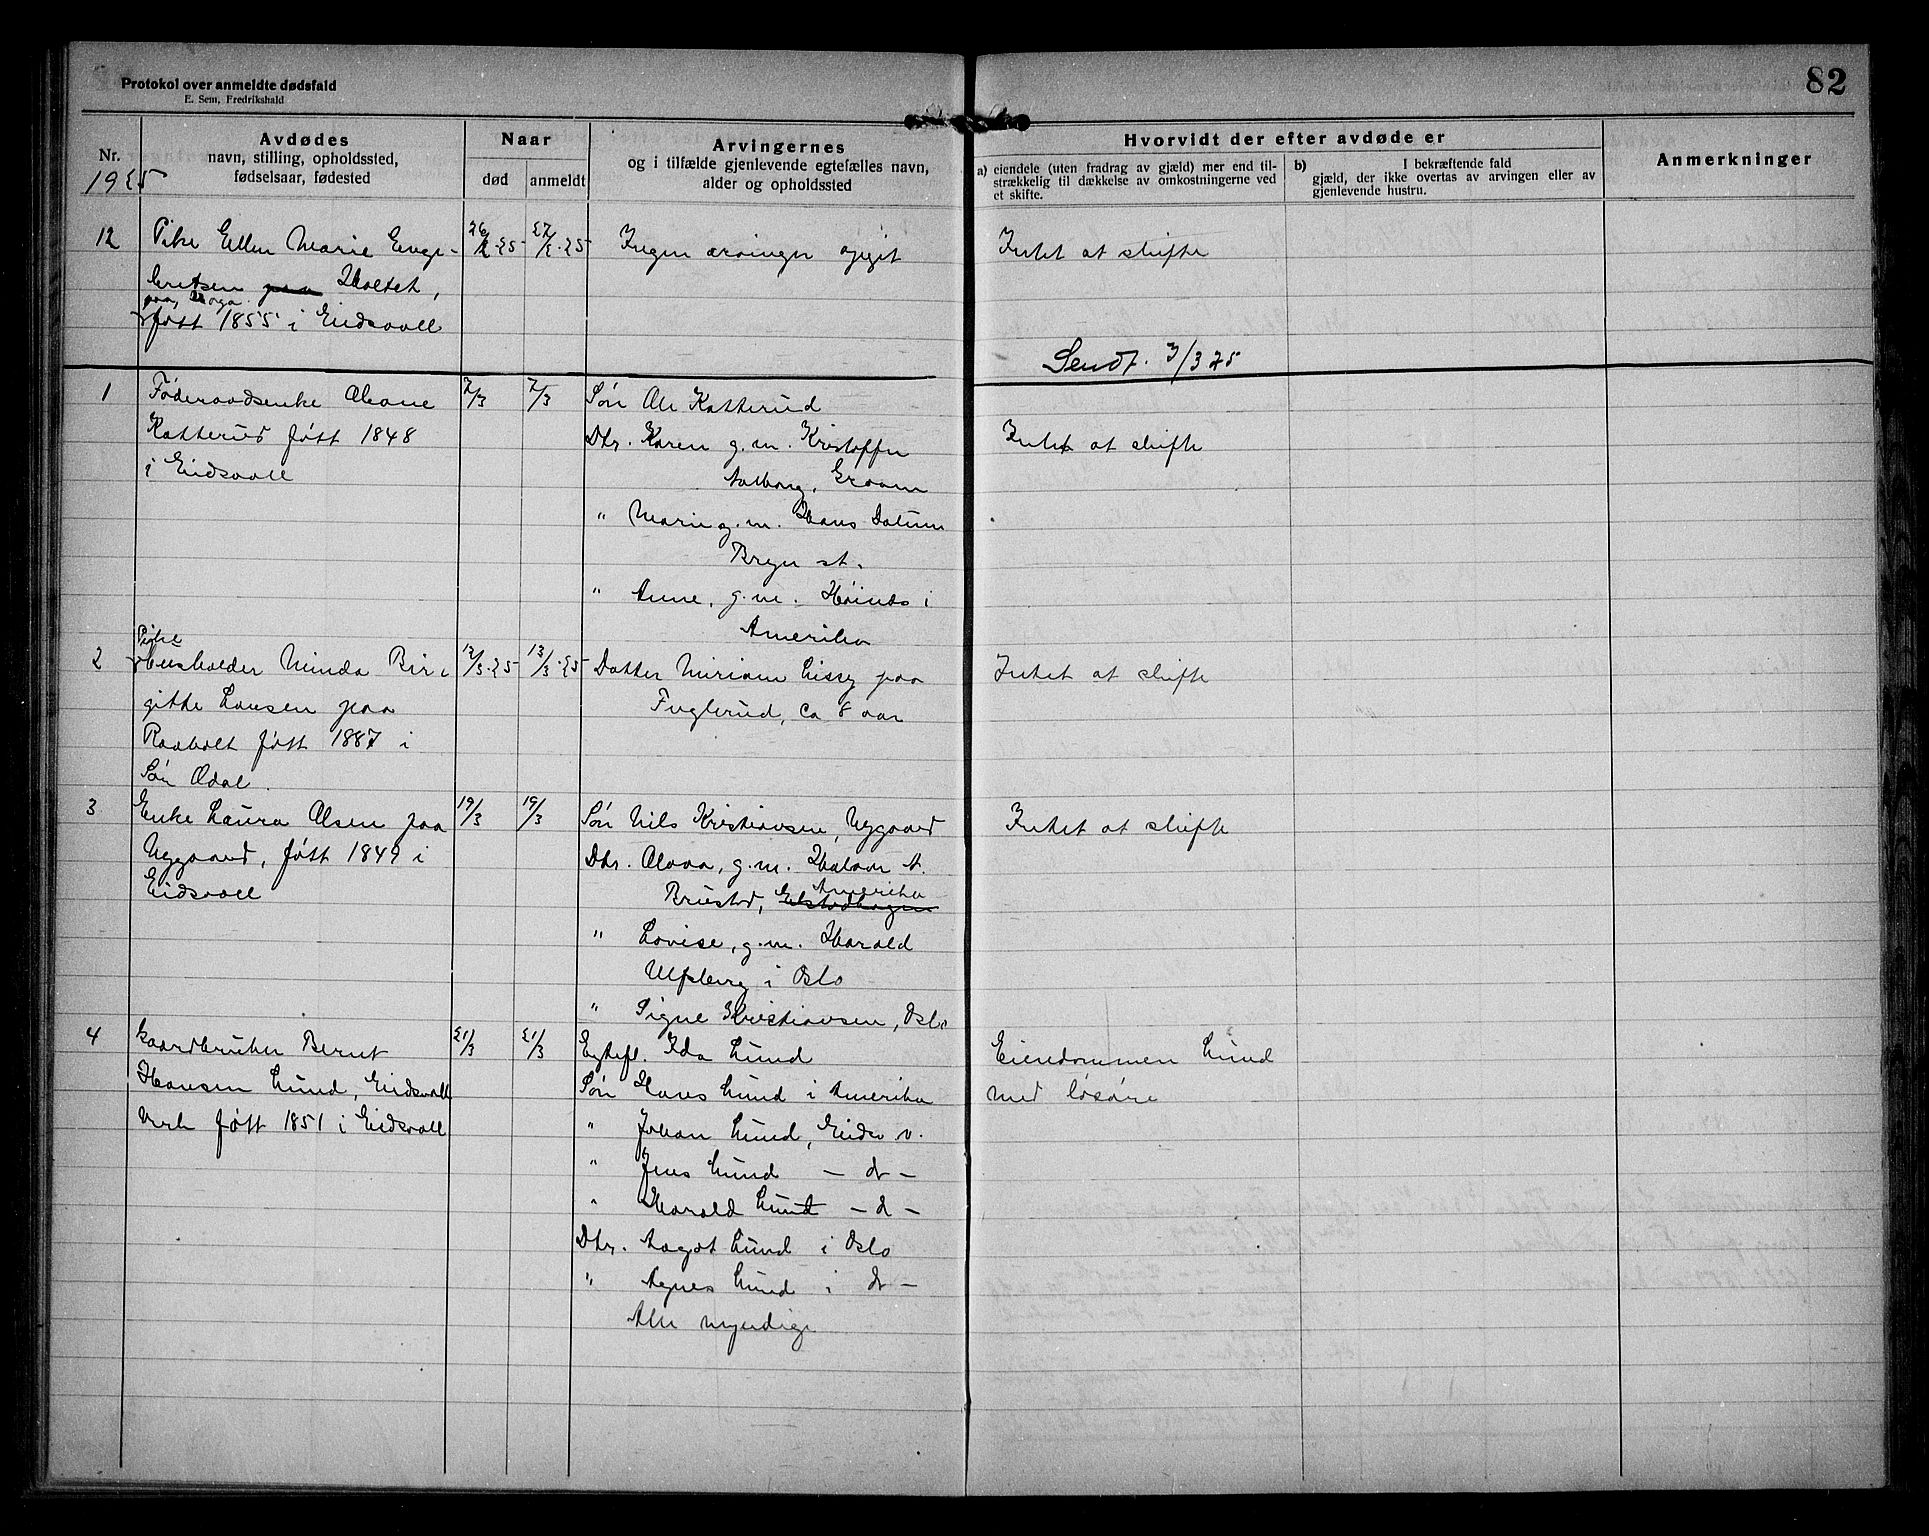 82
Protokol over anmeldte dødsfald
E. Sem, Fredrikshald
Nr.
1925
Avdødes
navn, stilling, opholdssted,
fødselsaar, fødested
Naar
død
anmeldt
Arvingernes
og i tilfælde gjenlevende egtefælles navn,
alder og opholdssted
Hvorvidt der efter avdøde er
a) eiendele (uten fradrag av gjæld) mer end til-
strækkelig til dækkelse av omkostningerne ved
et skifte.
b) I bekræftende fald
gjæld, der ikke overtas av arvingen eller av
gjenlevende hustru.
Anmerkninger
12 Pike Ellen Marie Enge- 26/2-25 27/2-25 Ingen arvinger opgit Intet at skifte
bretsen paa Holtet,
paa Moga.
født 1855 i Eidsvoll
Sendt. 3/3 25
1 Føderaadsenke Oleane 7/3 7/3 Søn Ole Katterud
Katterud født 1848 Dtr. Karen g.m. Kristoffer Intet at skifte
i Eidsvoll Aalborg,
" Marie g.m. Hans Dalum
Bryn st.
" Anne, g.m. i
Amerika
Pike
2 Husholder Minda Bir- 12/3-25 13/3-25 Datter Miriam Lissy paa Intet at skifte
gitte Larsen paa Fuglerud, ca 8 aar
Raaholt født 1887 i
Søn Odal.
3 Enke Laura Olsen paa 19/3 19/3 Søn Nils Kristiansen, Nygaard Intet at skifte
Nygaard, født 1849 i Dtr. Olava, g.m. Halvor A.
Eidsvoll Brustad, Amerika
" Lovise, g.m. Harald
Ulfsberg i Oslo
" Signe Kristiansen, Oslo
4 Gaardbruker Bernt 21/3 21/3 Egtefl. Ida Lund Eiendommen Lund
Hansen Lund, Eidsvoll Søn Hans Lund i Amerika med løsøre
Verk født 1851 i Eidsvoll " Johan Lund, Eidsv v.
" Jens Lund — d —
" Harald Lund — d —
Dtr. Aagot Lund i Oslo
" Agnes Lund i d —
Alle myndige